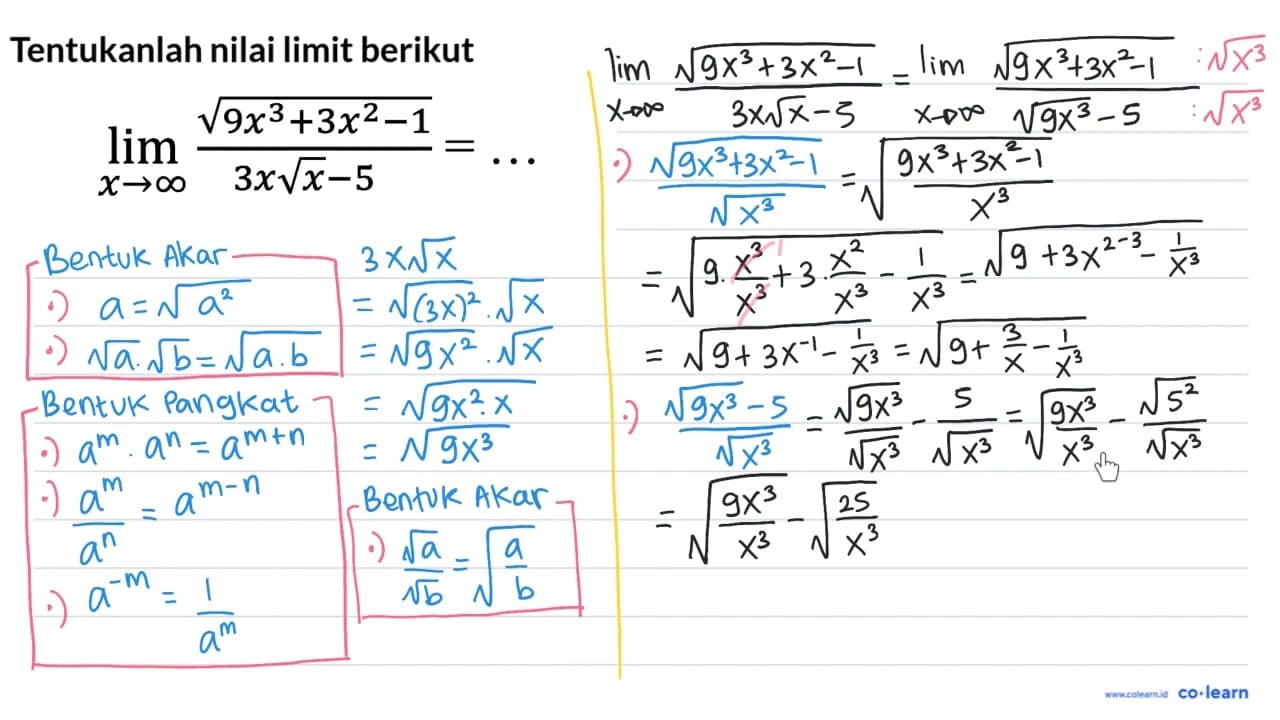 Tentukanlah nilai limit berikut
lim x→∞ √(9x³+3x²−1) / (3x√x−5) = ...
Bentuk Akar
•) a = √a²
•) √a . √b = √a.b
Bentuk Pangkat
•) aᵐ . aⁿ = aᵐ⁺ⁿ
•) aᵐ/aⁿ = aᵐ⁻ⁿ
•) a⁻ᵐ = 1/aᵐ
3x√x
= √(3x)² . √x
= √9x² . √x
= √9x².x
= √9x³
Bentuk Akar
•) √a/√b = √(a/b)
lim x→∞ √(9x³+3x²−1) / (3x√x−5) = lim x→∞ √(9x³+3x²−1) / (√9x³ − 5) :√x³ :√x³
•) √(9x³+3x²−1) / √x³ = √((9x³+3x²−1)/x³)
= √(9.x³/x³ + 3.x²/x³ − 1/x³) = √(9+3x²⁻³ − 1/x³)
1
= √(9+3x⁻¹ − 1/x³) = √(9+3/x − 1/x³)
•) (√9x³ − 5)/√x³ = √9x³/√x³ − 5/√x³ = √(9x³/x³) − √5²/√x³
= √(9x³/x³) − √(25/x³)
www.colearn.id co·learn